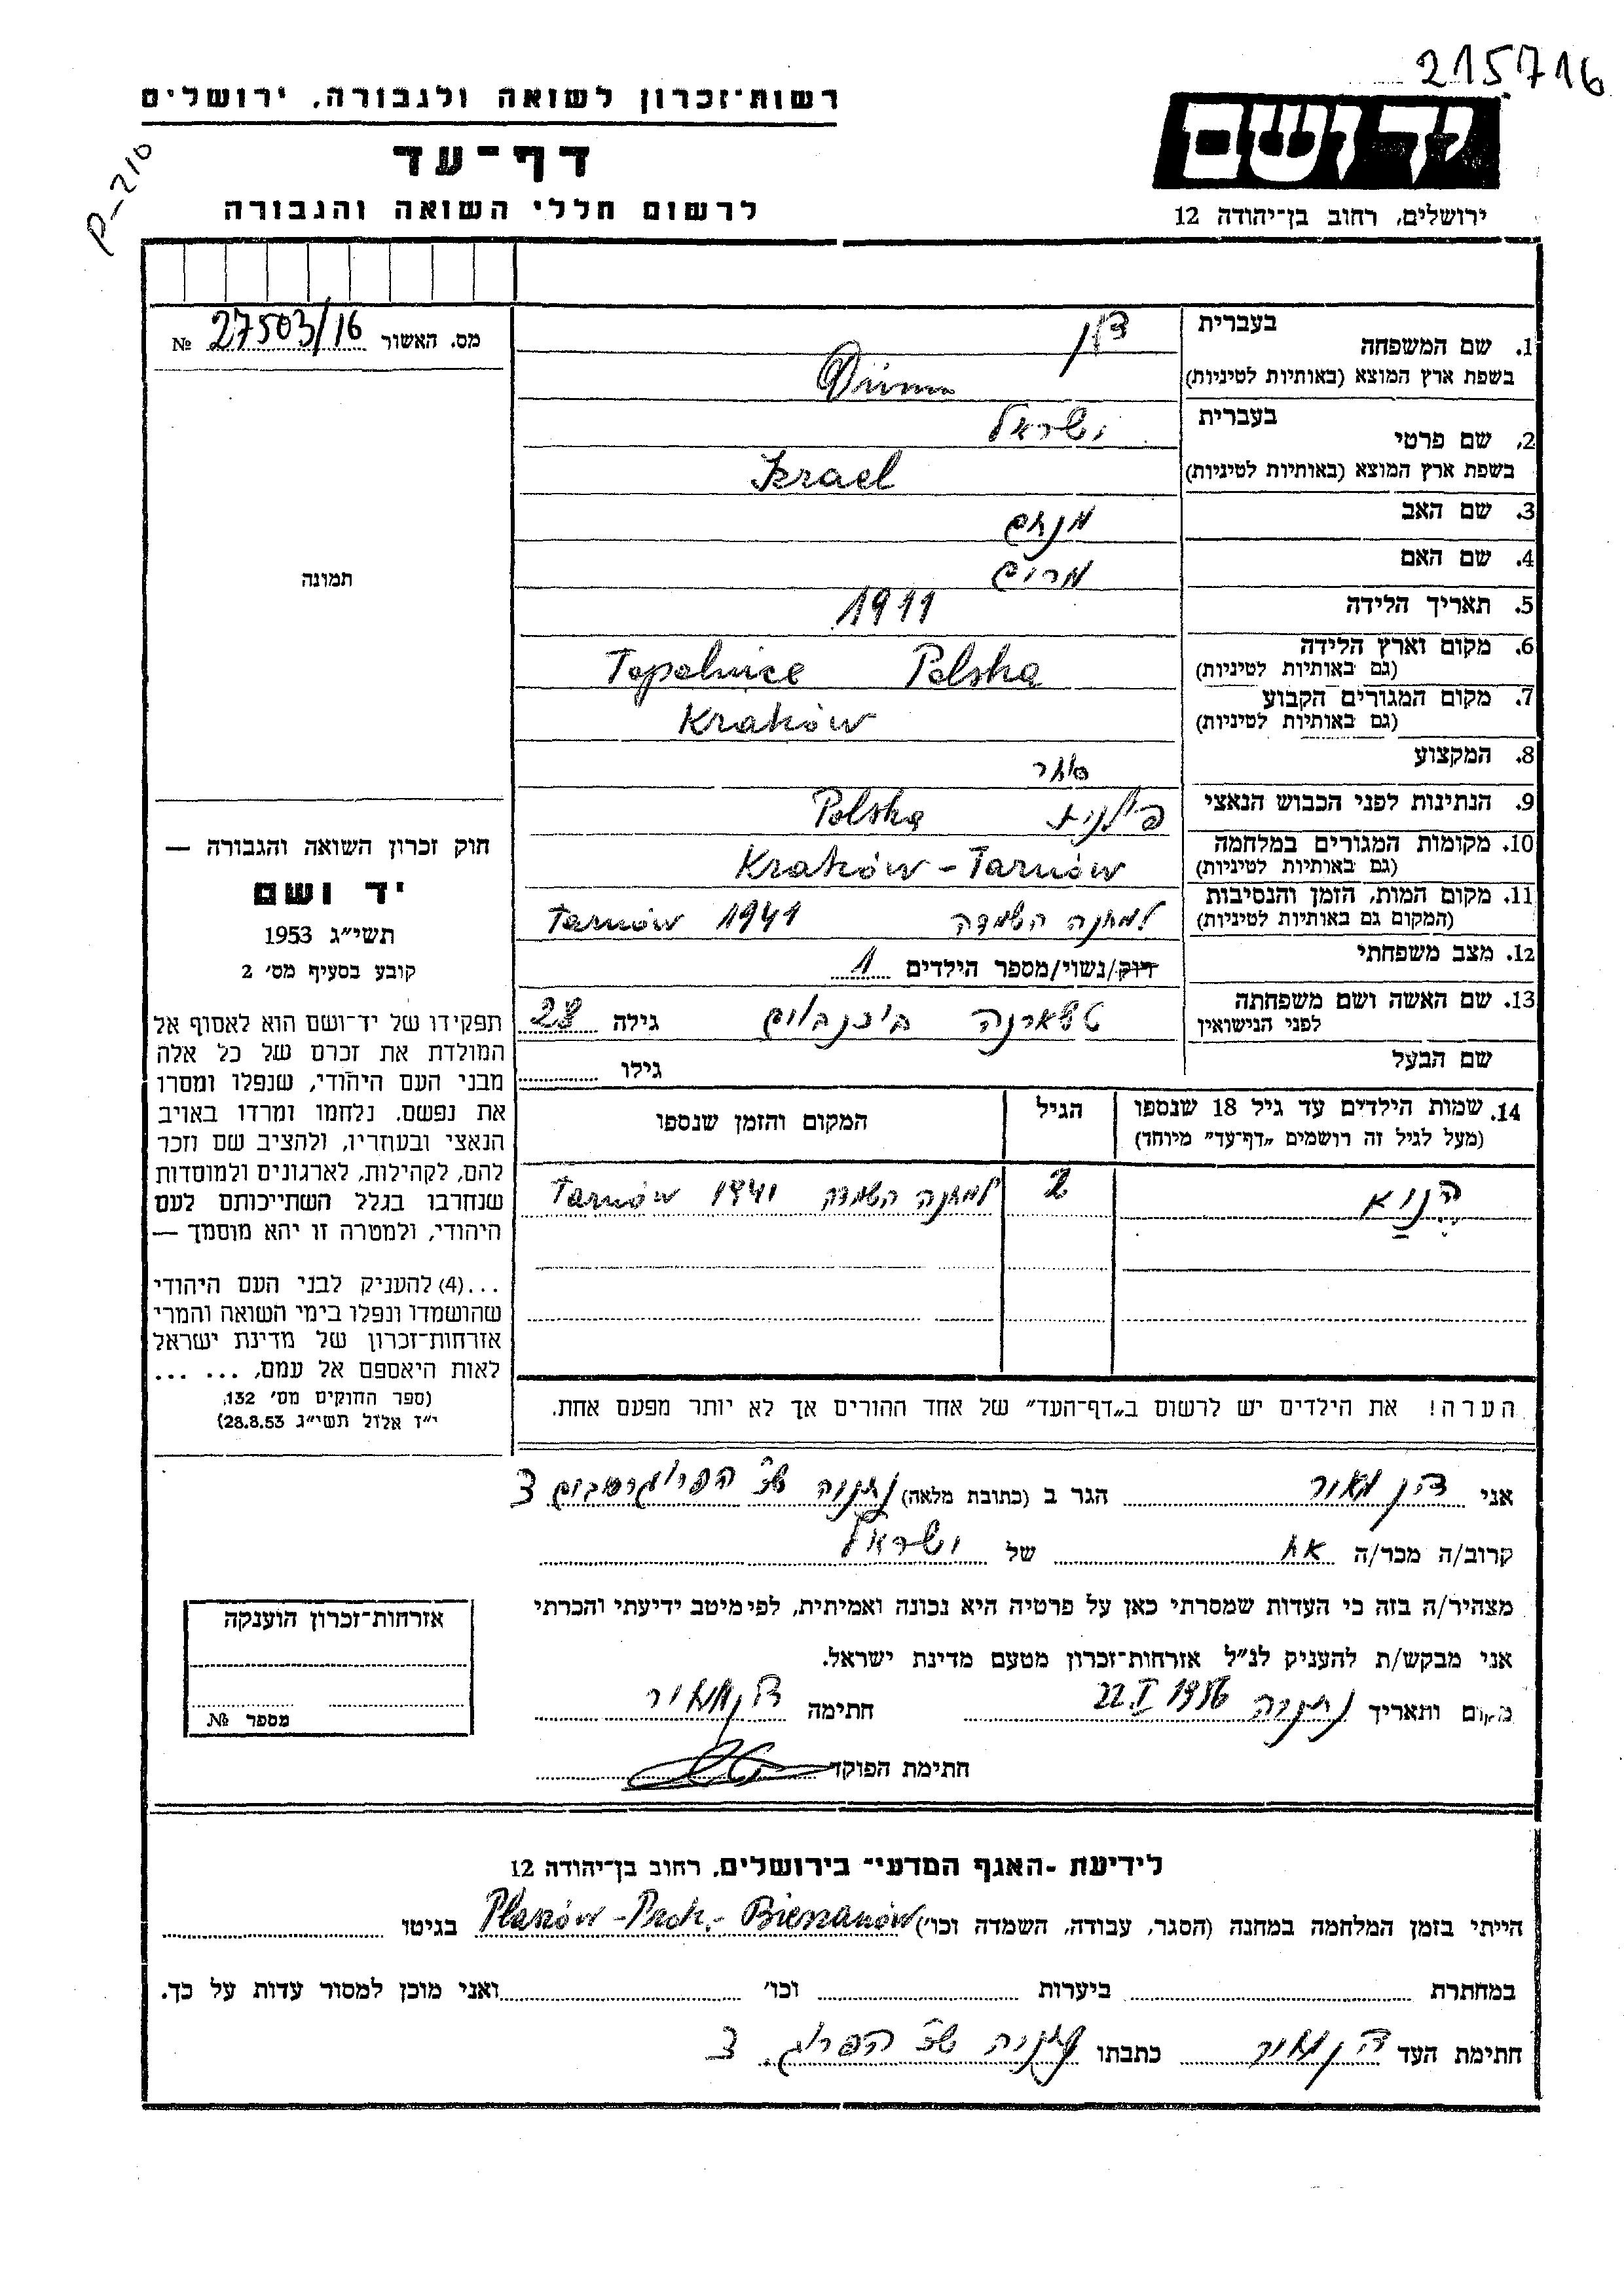 215716
רשות־זכרון לשואה ולגבורה, ירושלים
יד ושם
דף־עד
P-210
לרשום חללי השואה והגבורה
ירושלים, רחוב בן־יהודה 12
מס. האשור № 27503/16
בעברית
1. שם המשפחה
בשפת ארץ המוצא (באותיות לטיניות)
בעברית ישראל
2. שם פרטי
בשפת ארץ המוצא (באותיות לטיניות) Izrael
3. שם האב מנחם
4. שם האם מרים
5. תאריך הלידה 1911
6. מקום וארץ הלידה Topolnice Polska
(גם באותיות לטיניות)
7. מקום המגורים הקבוע Kraków
(גם באותיות לטיניות)
8. המקצוע סוחר
9. הנתינות לפני הכבוש הנאצי פולנית Polska
10. מקומות המגורים במלחמה Kraków - Tarnów
(גם באותיות לטיניות)
11. מקום המות, הזמן והנסיבות למחנה השמדה 1941 Tarnów
(המקום גם באותיות לטיניות)
12. מצב משפחתי רוק/נשוי/מספר הילדים 1
13. שם האשה ושם משפחתה גילה 28
לפני הנישואין
שם הבעל גילו
14. שמות הילדים עד גיל 18 שנספו הגיל המקום והזמן שנספו
(מעל לגיל זה רושמים „דף־עד” מיוחד)
2 למחנה השמדה 1941 Tarnów
הערה! את הילדים יש לרשום ב„דף־העד” של אחד ההורים אך לא יותר מפעם אחת.
תמונה
חוק זכרון השואה והגבורה —
יד ושם
תשי״ג 1953
קובע בסעיף מס׳ 2
תפקידו של יד־ושם הוא לאסוף אל
המולדת את זכרם של כל אלה
מבני העם היהודי, שנפלו ומסרו
את נפשם, נלחמו ומרדו באויב
הנאצי ובעוזריו, ולהציב שם וזכר
להם, לקהילות, לארגונים ולמוסדות
שנחרבו בגלל השתייכותם לעם
היהודי, ולמטרה זו יהא מוסמך —
...(4) להעניק לבני העם היהודי
שהושמדו ונפלו בימי השואה והמרי
אזרחות־זכרון של מדינת ישראל
לאות היאספם אל עמם, ... ...
(ספר החוקים מס׳ 132,
י״ז אלול תשי״ג 28.8.53)
אני דן מאור הגר ב (כתובת מלאה) נתניה 3
קרוב/ה מכר/ה אח של ישראל
מצהיר/ה בזה כי העדות שמסרתי כאן על פרטיה היא נכונה ואמיתית, לפי מיטב ידיעתי והכרתי
אני מבקש/ת להעניק לנ״ל אזרחות־זכרון מטעם מדינת ישראל.
מקום ותאריך נתניה 22 I 1956 חתימה דן מאור
חתימת הפוקד
אזרחות־זכרון הוענקה
מספר №
לידיעת ־האגף המדעי־ בירושלים, רחוב בן־יהודה 12
הייתי בזמן המלחמה במחנה (הסגר, עבודה, השמדה וכו׳) Płaszów - Prok. - Bierzanów בגיטו
במחתרת ביערות וכו׳ ואני מוכן למסור עדות על כך.
חתימת העד דן מאור כתבתו נתניה 3